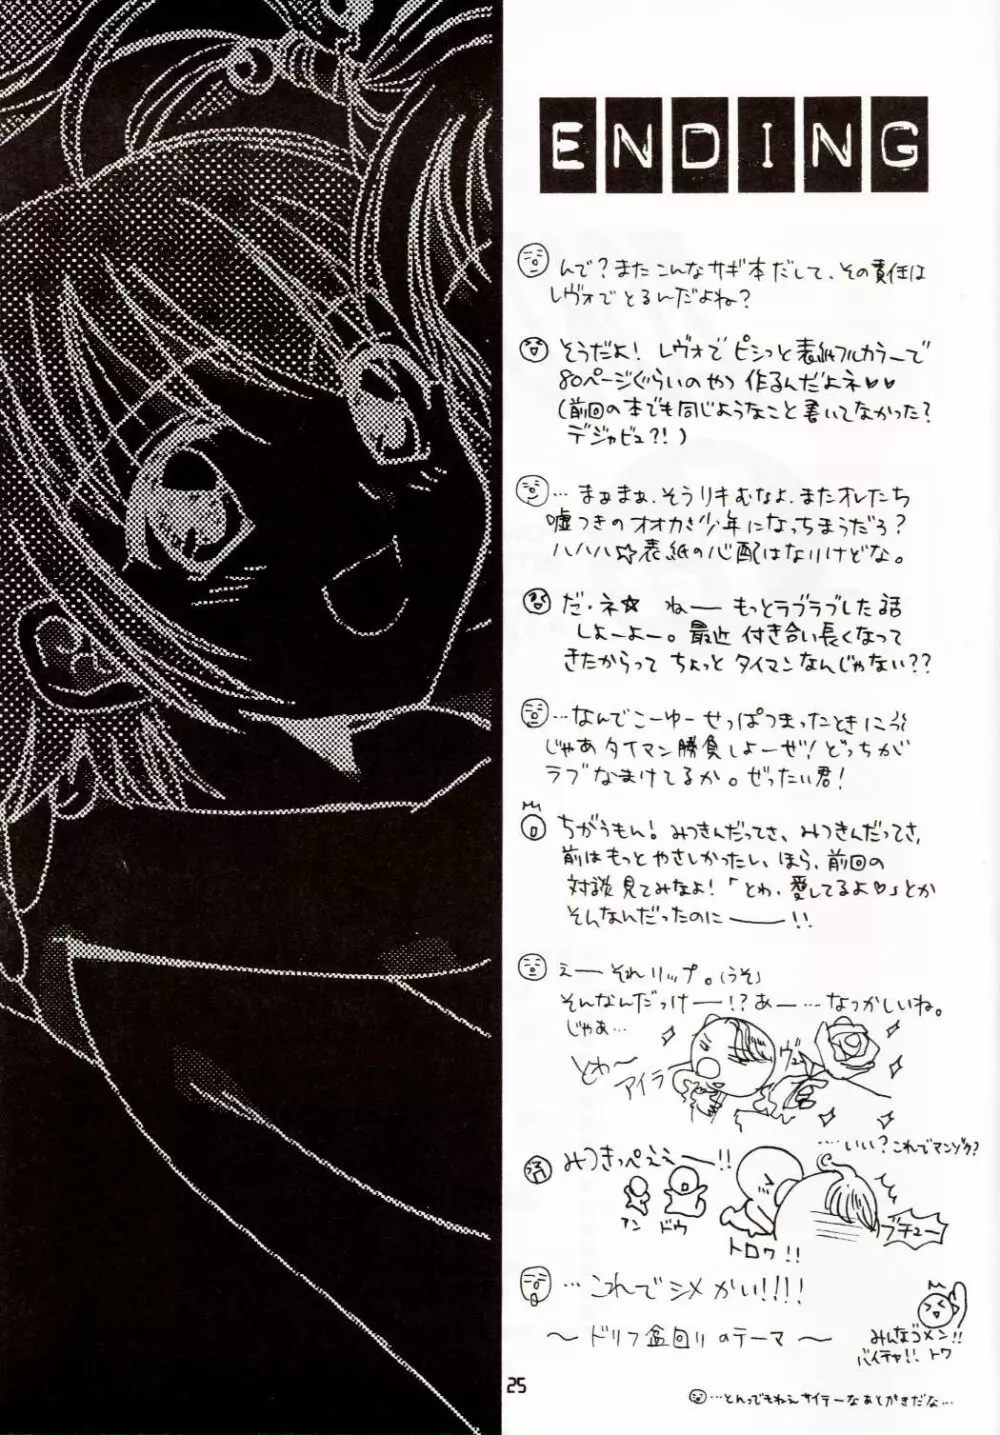 ENDING
んで?またこんなサギ本だして、その責任は
レヴォでとるんだよね?
そうだよ! レヴォでピシっと表紙フルカラーで
80ページぐらいのやつ作るんだよネ♥♥
(前回の本でも同じようなこと書いてなかった?
デジャビュ?!)
…まぁまぁ、そうリキむなよ、またオレたち
嘘つきのオオカミ少年になっちまうだろ?
ハハハ☆表紙の心配はないけどな。
だ・ネ☆ ねーもっとラブラブした話
しよーよー。最近 付き合い長くなって
きたからって ちょっと タイマンなんじゃない??
…なんでこーゆーせっぱつまったときに
じゃあタイマン勝負しよーぜ!どっちが
ラブなまけてるか。ぜったい君!
ちがうもん!みつきんだってさ、みつきんだってさ、
前はもっとやさしかったし、ほら、前回の
対談見てみなよ!「とわ、愛してるよ♥」とか
そんなんだったのに――!!
えーそれリップ。(うそ)
そんなんだっけー!?あー…なつかしいね。
じゃあ…
とわ〜
アイラ
ヴュ
….いい?これでマンゾク?
みつきっぺぇぇー!!
アン
ドウ
トロワ!!
ブチュー
…これでシメかい!!!!
〜ドリフ盆回りのテーマ〜
みんなゴメン!!
バイチャ!! トワ
25
…とんでもねえサイテーなあとがきだな…